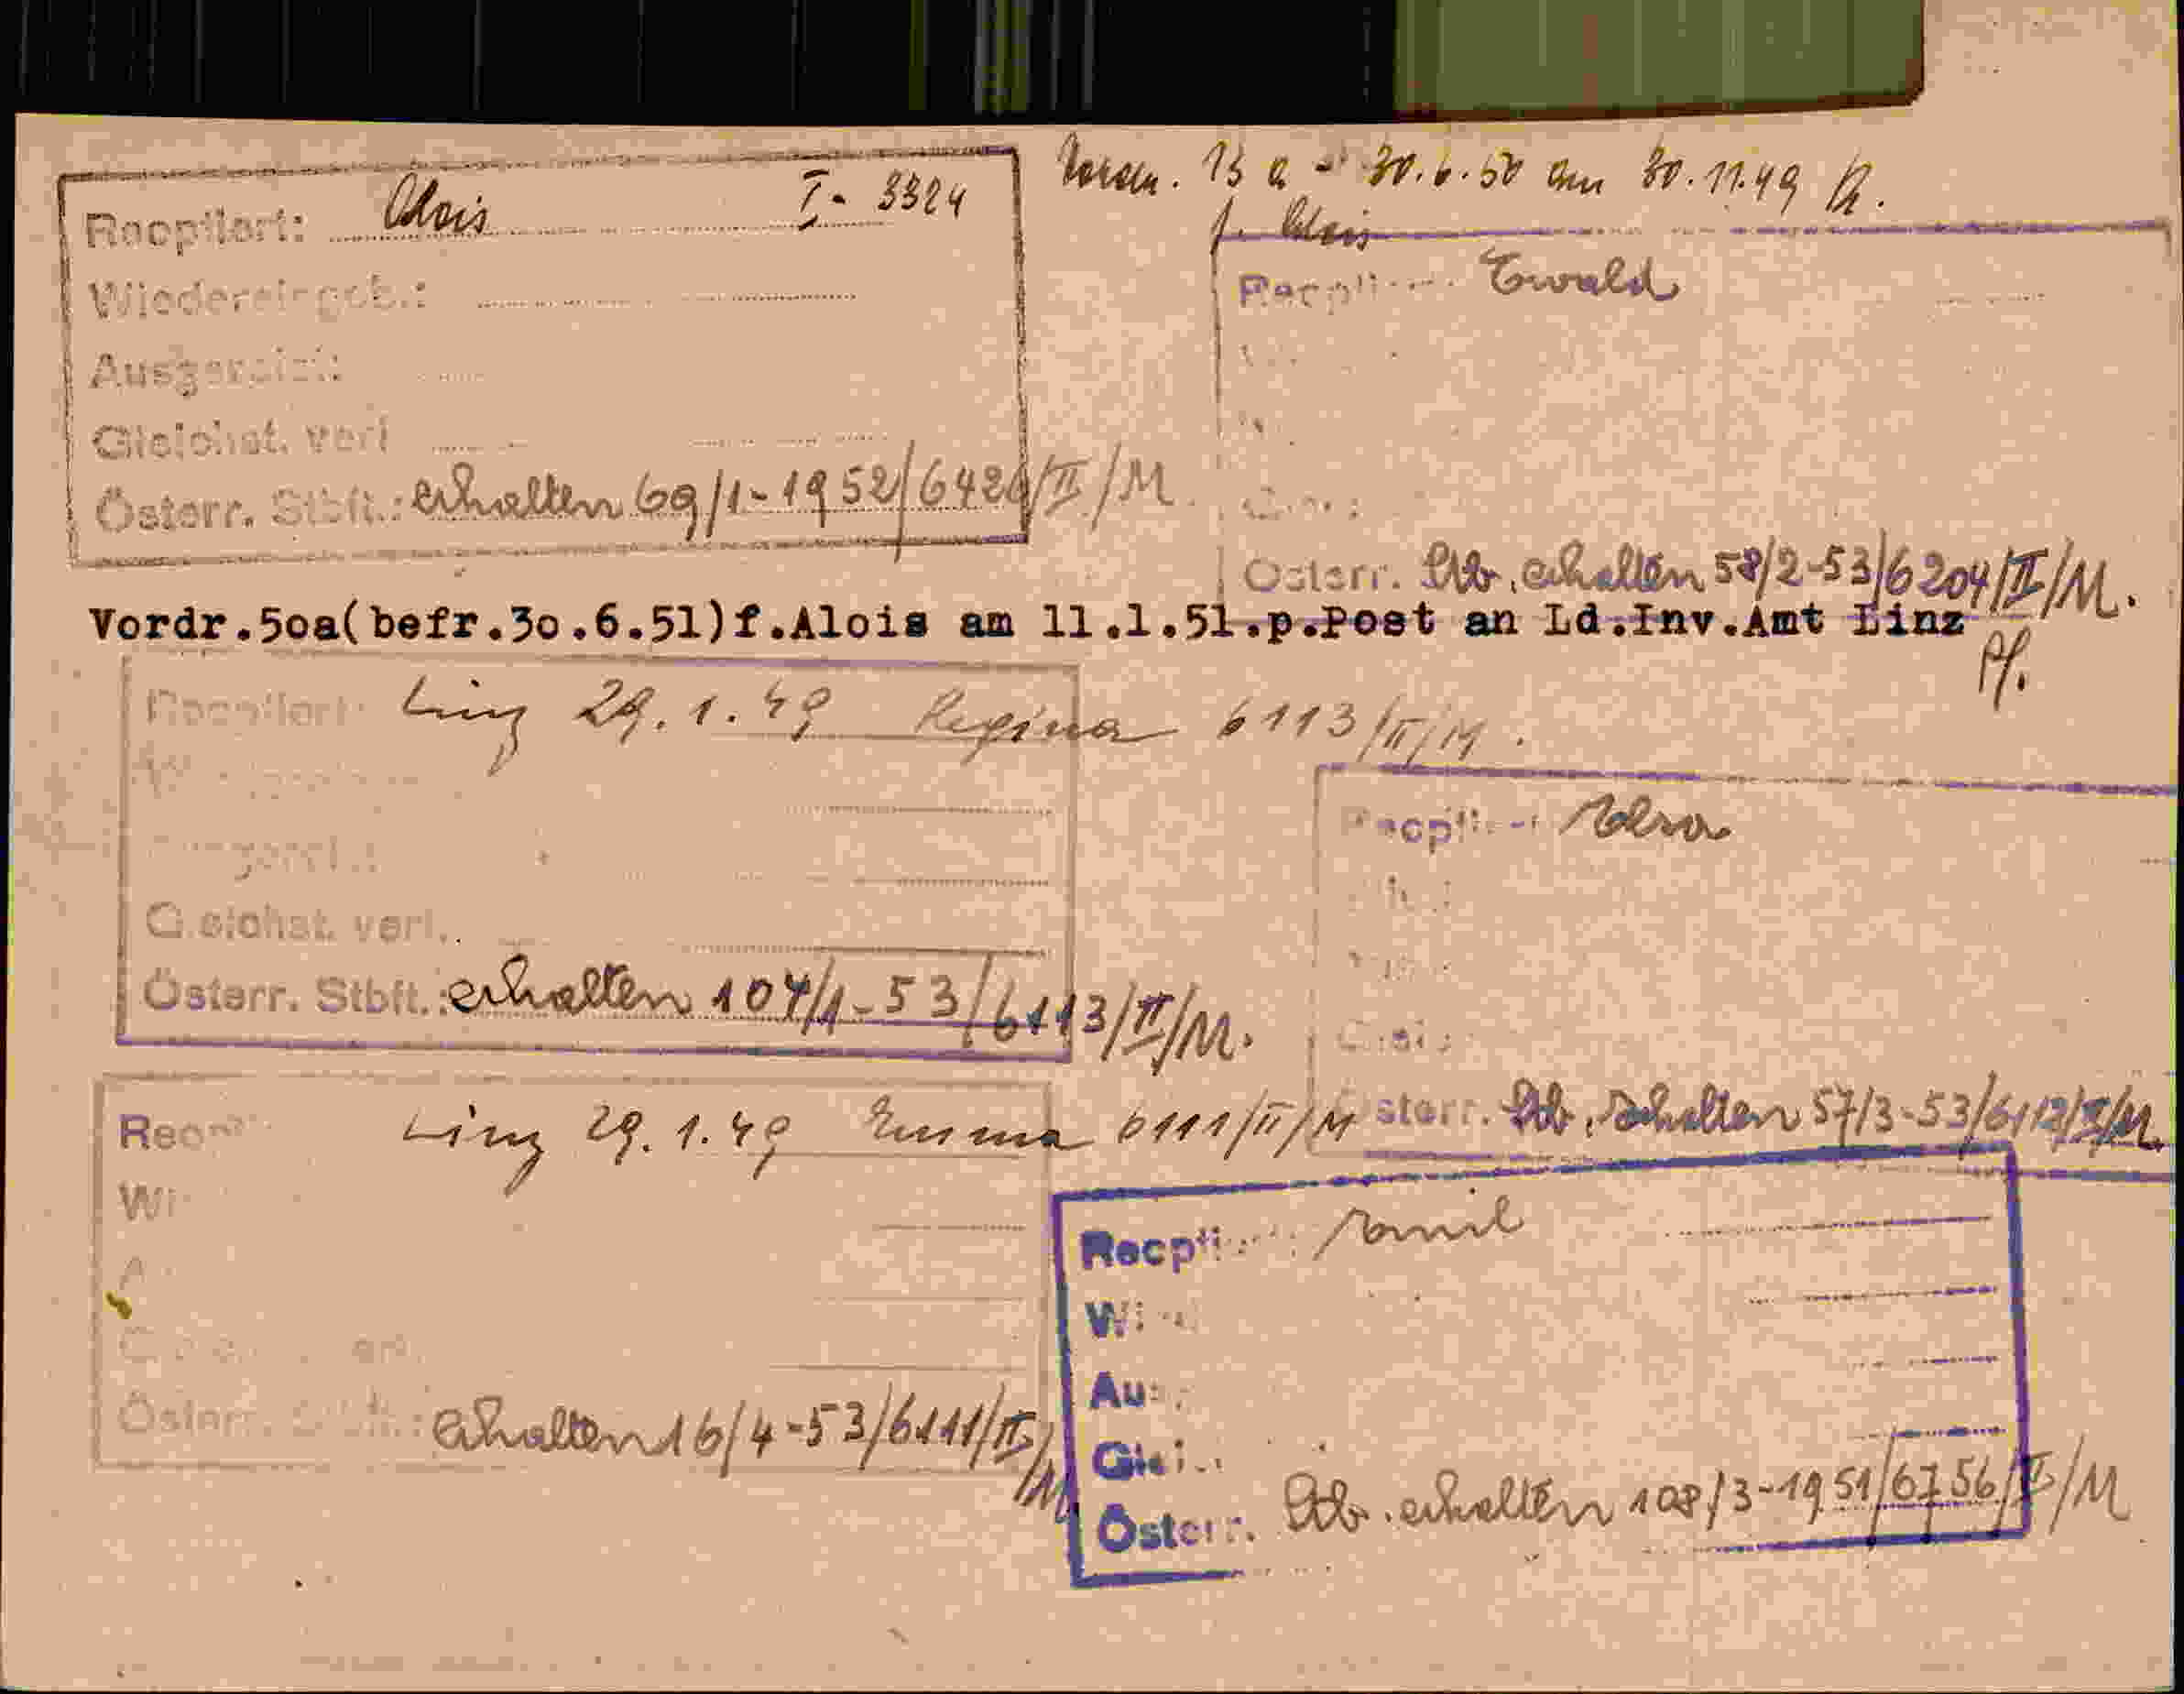 Recptiert: Alois I- 3324
Wiedereingeb.:
Ausgereist:
Gleichst. verl
Österr. Stbft.: erhalten 69/1-1952/6426/II/M.
Vordr. 13 a - 30.6.50 am 30.11.49
f. Alois
Recptiert Ewald
Österr. Stb. erhalten 58/2-53/6204/II/M.
Vordr.5oa(befr.3o.6.51)f.Alois am 11.1.51.p.Post an Ld.Inv.Amt Linz
Pf.
Recptiert: Linz 29.1.49 Regina 6113/II/M.
Gleichst. verl.
Österr. Stbft.: erhalten 104/1-53/6113/II/M.
Recptiert Elsa
Österr. Stb. erhalten 57/3-53/6112/II/M.
Linz 29.1.49 Emma 6111/II/M
Österr. Stbft.: erhalten 16/4-53/6111/II/
/M
Recptiert: Emil
Österr. Stb. erhalten 108/3-1951/6756/II/M